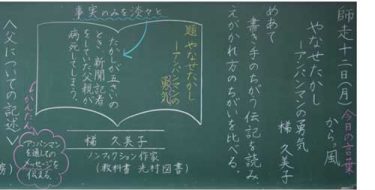 師走十二日(月)
今日の言葉
から風
やなせたかし
―アンパンマンの勇気
梯 久美子
めあて
書き手のちがう伝記を読み
えがかれ方のちがいを比べる。
事実のみを淡々と
題 やなせたかし
―アンパンマンの勇気
たかしが五さいの
とき新聞記者
をしていた父親が
病死してしまう。
梯 久美子
ノンフィクション作家
(教科書 光村図書)
〈父についての記述〉
かんたん
アンパンマン
を通しての
メッセージを
伝える。